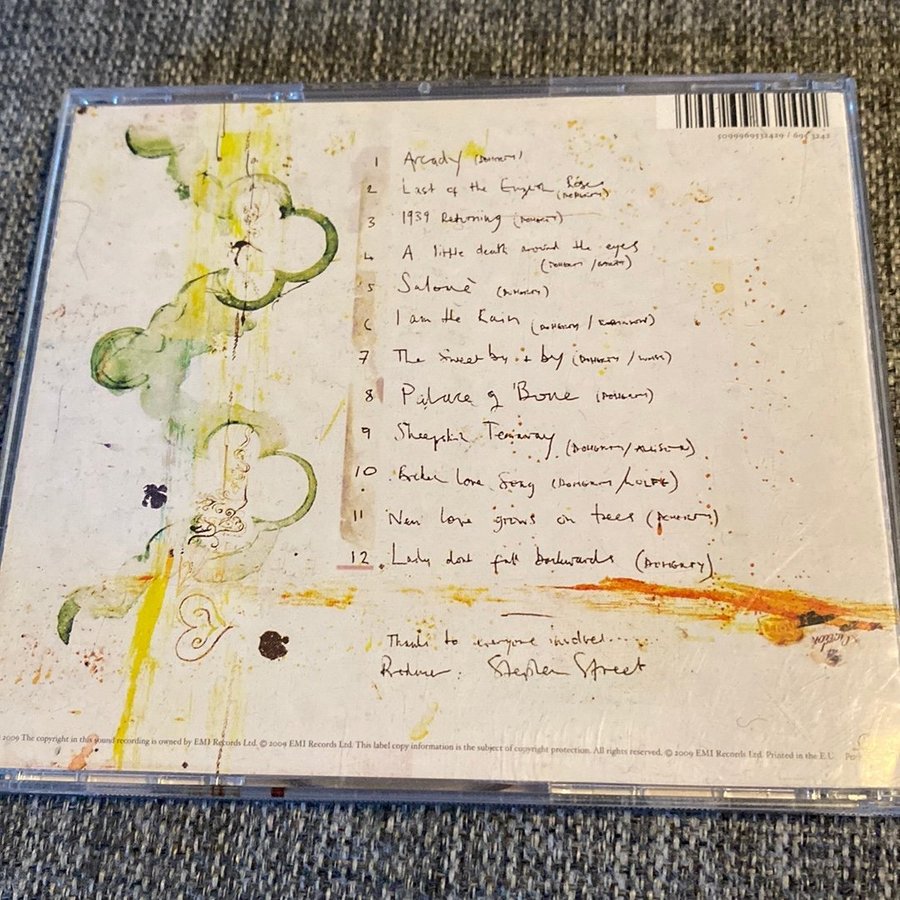 5099969532429 / 695 3242
1 Arcady (DOHERTY)
2 Last of the English Roses
(DOHERTY)
3 1939 Returning (DOHERTY)
4 A little death around the eyes
(DOHERTY / BARÂT)
5 Salomè (DOHERTY)
6 I am the Rain (DOHERTY / ROBINSON)
7 The sweet by + by (DOHERTY / WOLFE)
8 Palace of 'Bone (DOHERTY)
9 Sheepskin Tearaway (DOHERTY/ALLISON)
10 Broken love song (DOHERTY/WOLFE)
11 New love grows on trees (DOHERTY)
12 Lady dont fall backwards (DOHERTY)
Thanks to everyone involved......
Producer: Stephen Street
2009 The copyright in this sound recording is owned by EMI Records Ltd. © 2009 EMI Records Ltd. This label copy information is the subject of copyright protection. All rights reserved. © 2009 EMI Records Ltd. Printed in the E.U.